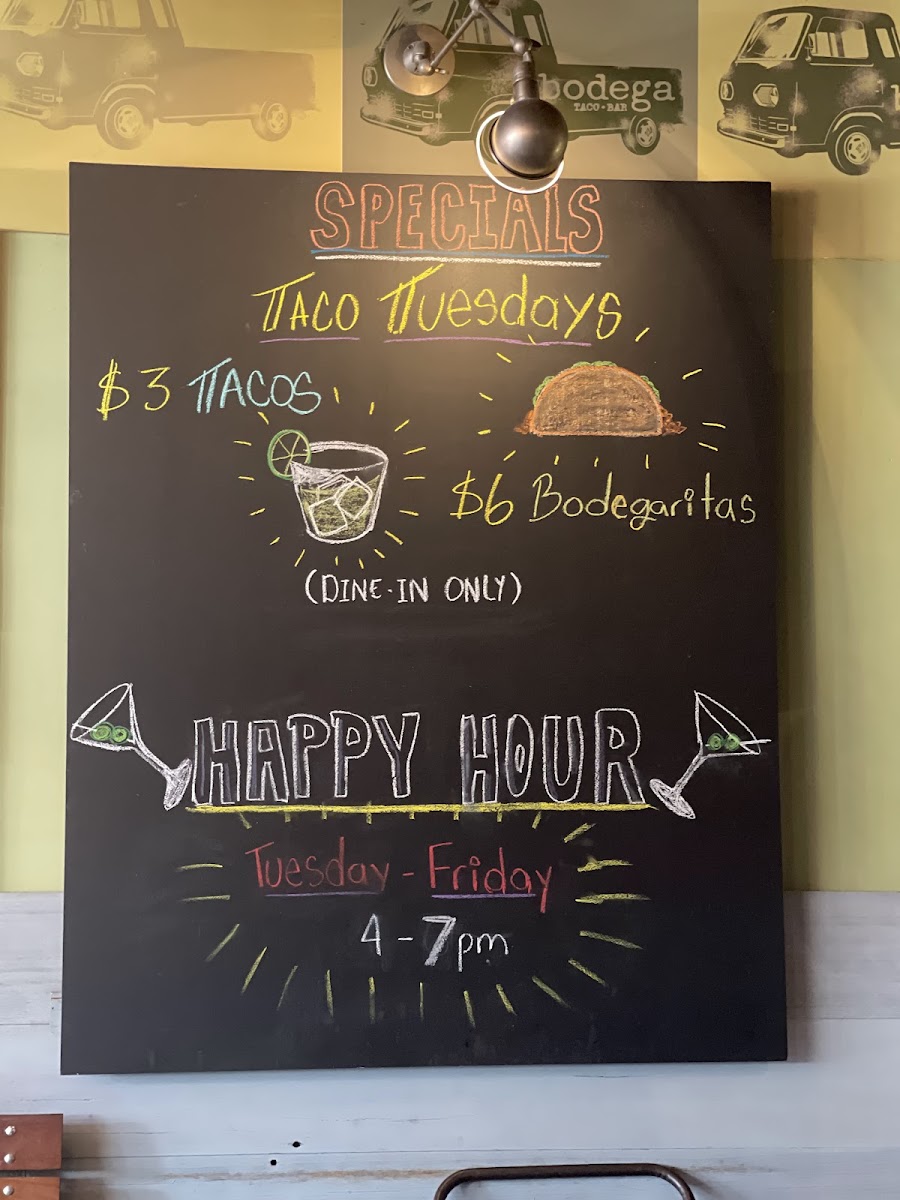 bodega
TACO-BAR
SPECIALS
TACO TUesdays
$3 TACOS
$6 Bodegaritas
(DINE-IN ONLY)
HAPPY HOUR
Tuesday - Friday
4 - 7pm